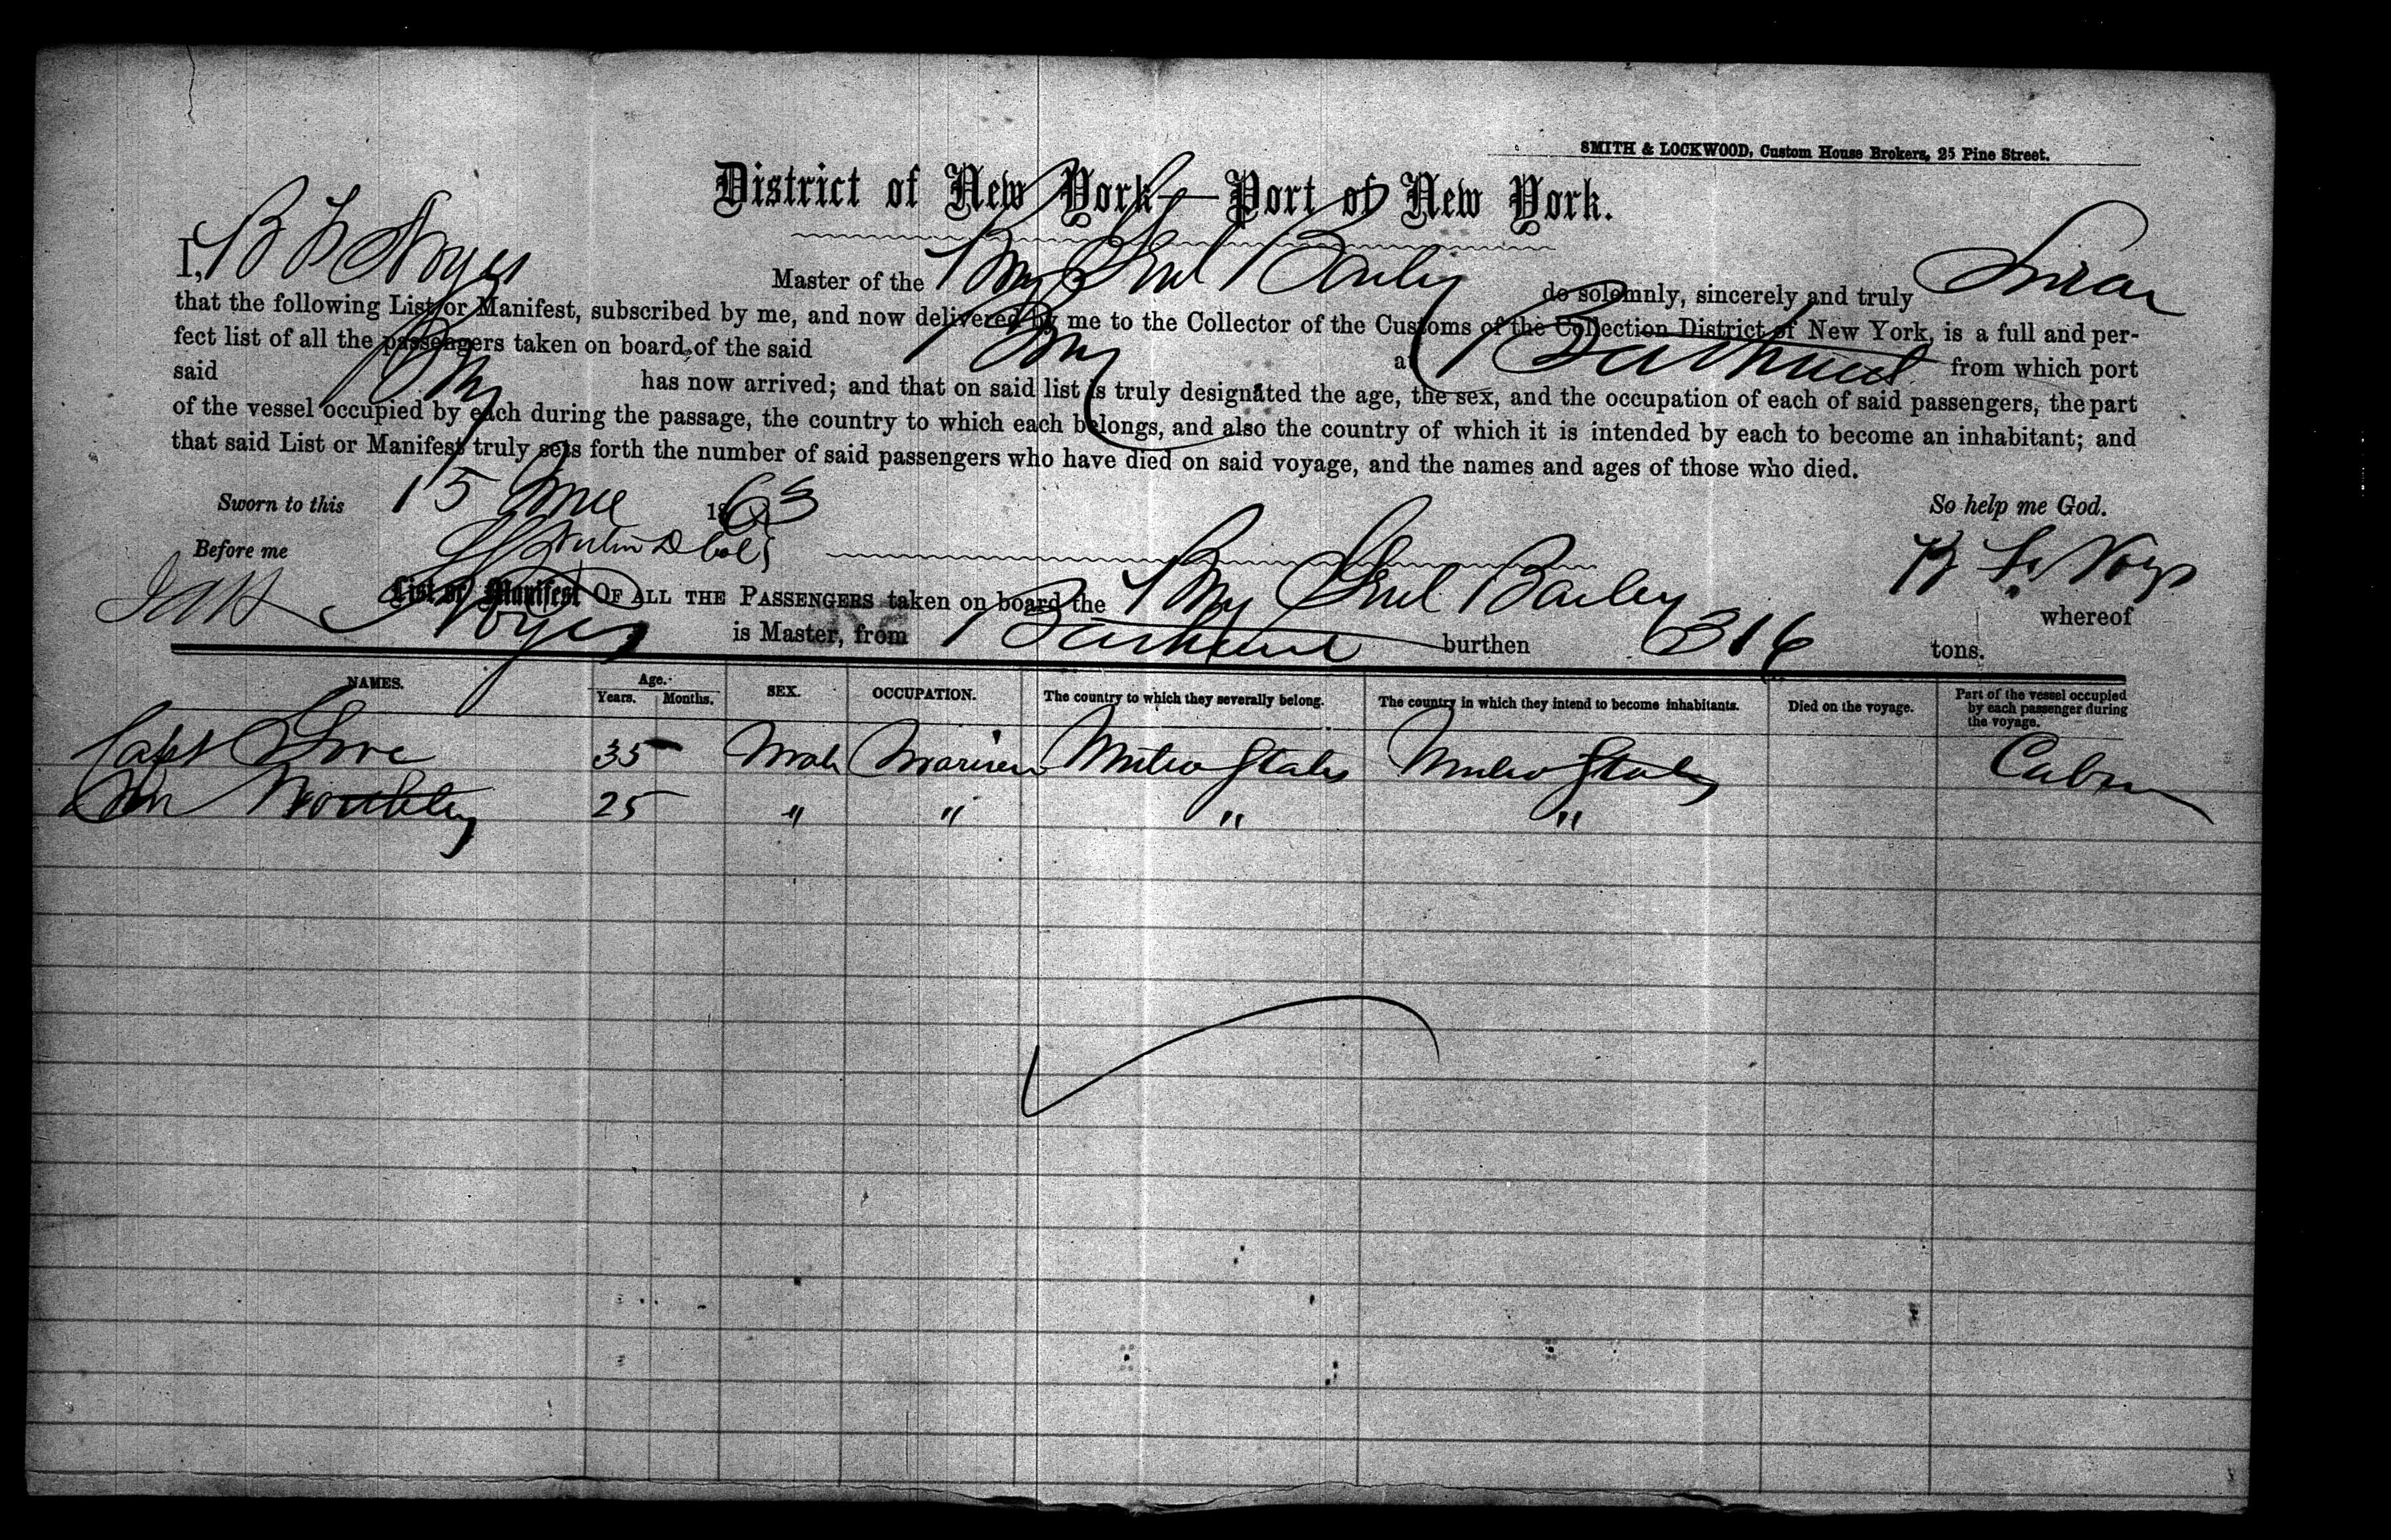 SMITH & LOCKWOOD, Custom House Brokers, 25 Pine Street.
District of New York—Port of New York.
I, B F Noyes Master of the Brig Bailey do solemnly, sincerely and truly Swear
that the following List or Manifest, subscribed by me, and now delivered by me to the Collector of the Customs of the Collection District of New York, is a full and per-
fect list of all the passengers taken on board of the said Brig at Bathurst from which port
said Brig has now arrived; and that on said list is truly designated the age, the sex, and the occupation of each of said passengers, the part
of the vessel occupied by each during the passage, the country to which each belongs, and also the country of which it is intended by each to become an inhabitant; and
that said List or Manifest truly sets forth the number of said passengers who have died on said voyage, and the names and ages of those who died.
Sworn to this 15 June 1863 So help me God.
Before me B F Noyes
List or Manifest OF ALL THE PASSENGERS taken on board the Brig Bailey whereof
Noyes is Master, from Bathurst burthen 316 tons.
NAMES. Age. Years. Months. SEX. OCCUPATION. The country to which they severally belong. The country in which they intend to become inhabitants. Died on the voyage. Part of the vessel occupied by each passenger during the voyage.
Capt 35 Male Mariner United States United States Cabin
25 " " " "